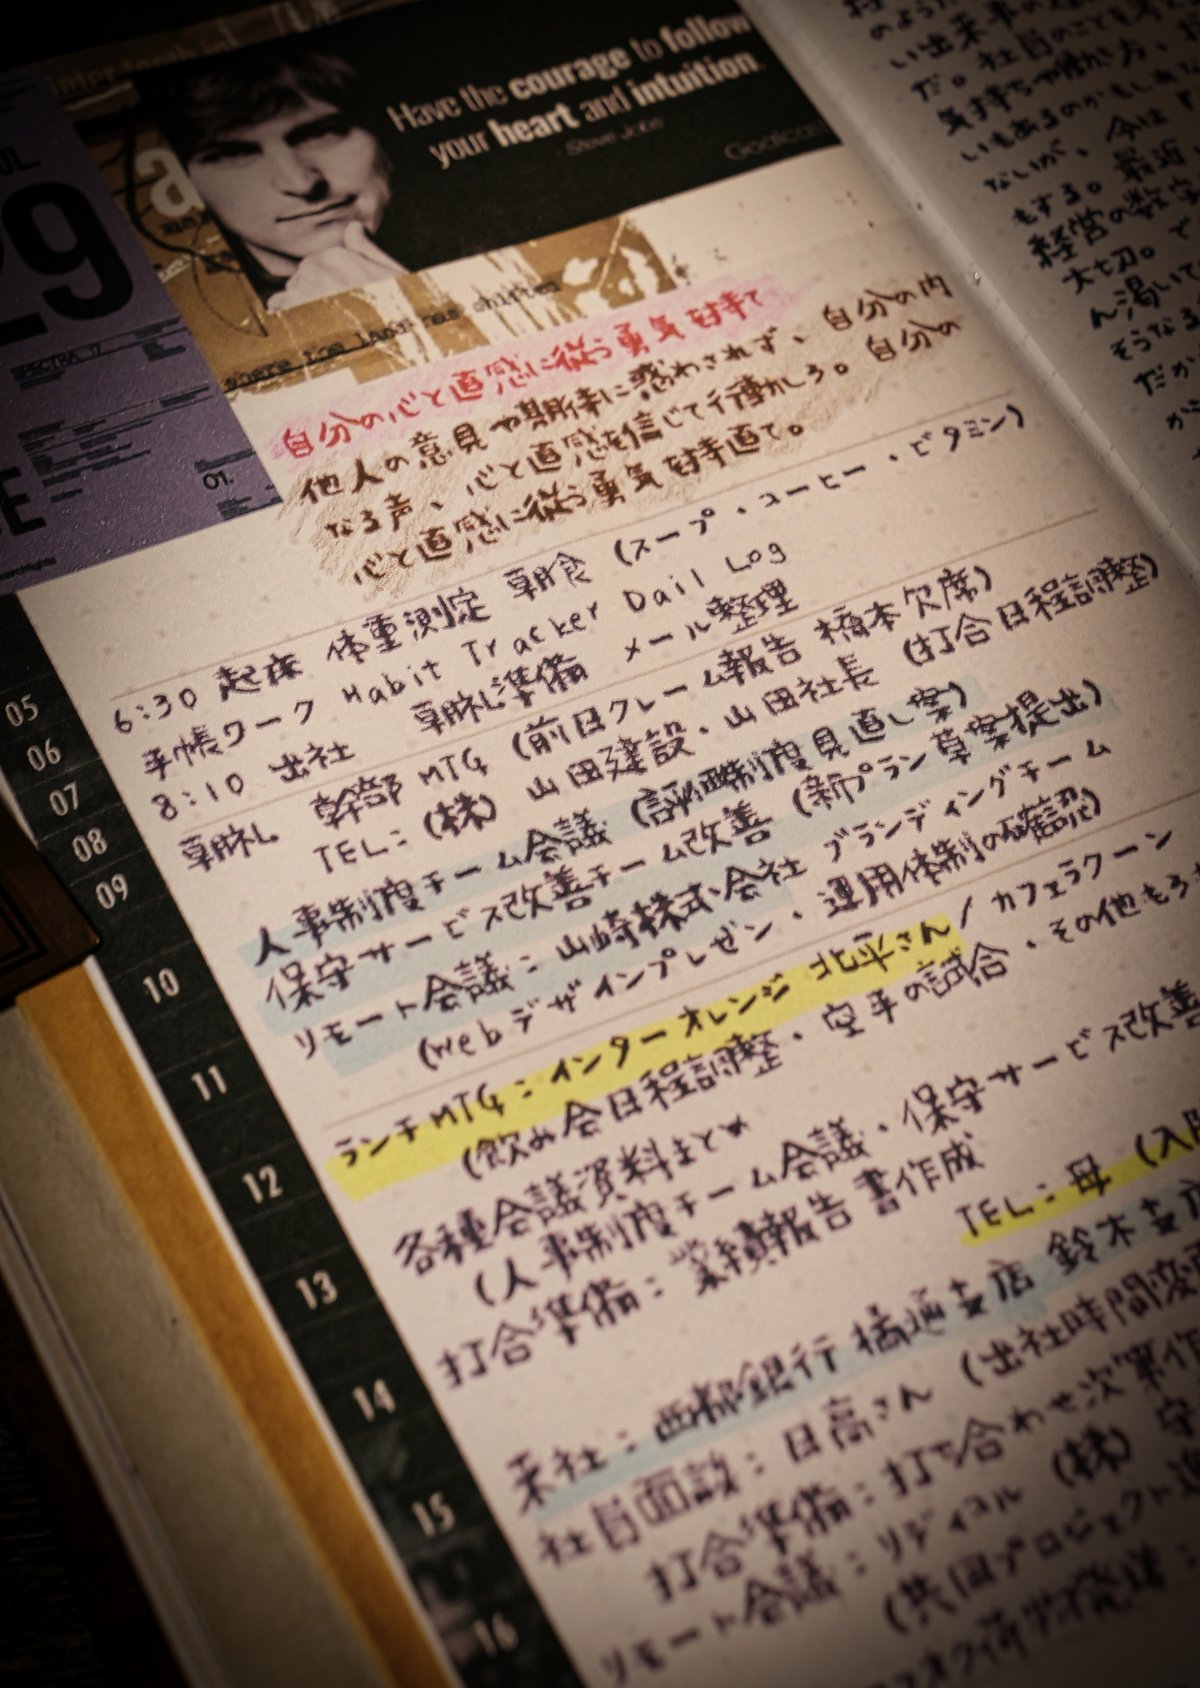 Have the courage to follow
your heart and intuition.
Steve Jobs
29
SPECTRA
01.
自分の心と直感に従う勇気を持て
他人の意見や期待に惑わされず、自分の内
なる声、心と直感を信じて行動しろ。自分の
心と直感に従う勇気を持て。
05
06
07
08
09
10
11
12
13
14
15
16
6:30 起床 体重測定 朝食 (スープ・コーヒー・ビタミン)
手帳ワーク Habit Tracker Dail Log
8:10 出社 朝礼準備 メール整理
朝礼 幹部MTG (前日クレーム報告 橋本欠席)
TEL:(株) 山田建設・山田社長 (打合日程調整)
人事制度チーム会議 (評価制度見直し案)
保守サービス改善チーム改善 (新プラン草案提出)
リモート会議:山崎株式会社 ブランディングチーム
(Webデザインプレゼン・運用体制の確認)
ランチMTG:インターオレンジ 北平さん/カフェラクーン
(飲み会日程調整・空手の試合・その他もろ
各種会議資料まとめ
(人事制度チーム会議・保守サービス改善
打合準備:業績報告書作成
TEL:母 (入
来社:西都銀行 橘通支店 鈴木支店
社員面談:日高さん (出社時間変
打合準備:打ち合わせ次第作
リモート会議:リディコル (株)
(共同プロジェクト進
い出来事の
だ。社員のことも考え
気持ちや働き方、
いもあるのかもしれな
ないが、今は
もする。最近、
経営の数字
大切。で
ん渇いて
そうなる
だか